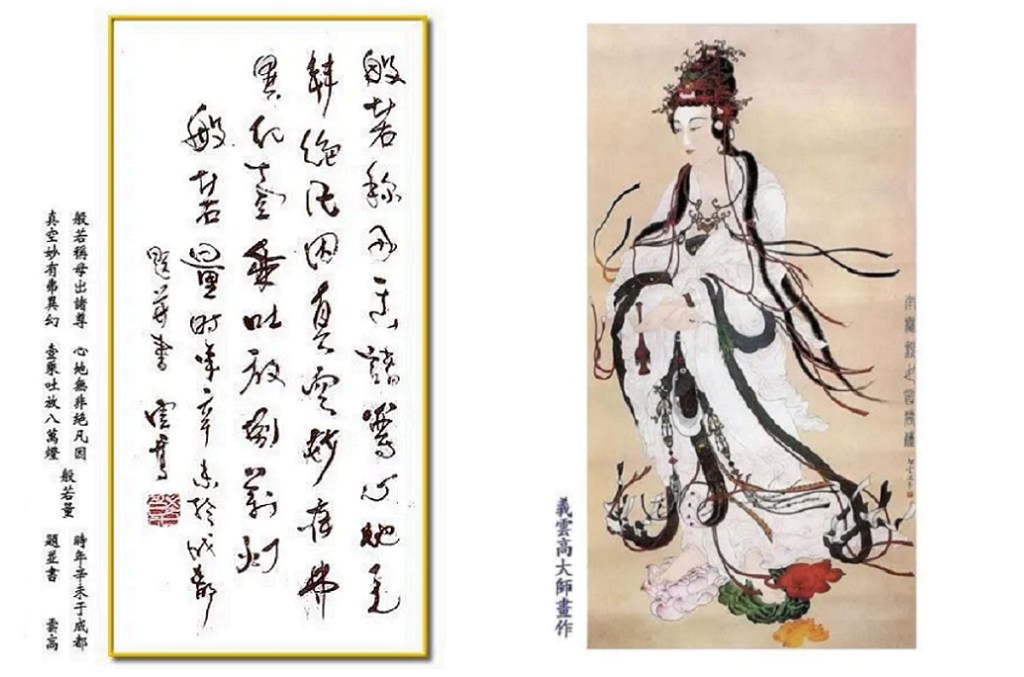 般若稱母出諸尊心地无
非絕凡因真空妙有弗
異幻壹乘吐放捌萬灯
般若量時年辛未於成都
題并書 雲高
般若稱母出諸尊 心地無非絕凡因
真空妙有弗異幻 壹乘吐放八萬燈
般若量
時年辛未于成都
題並書 雲高
南無觀世音菩薩
義雲高大師畫作